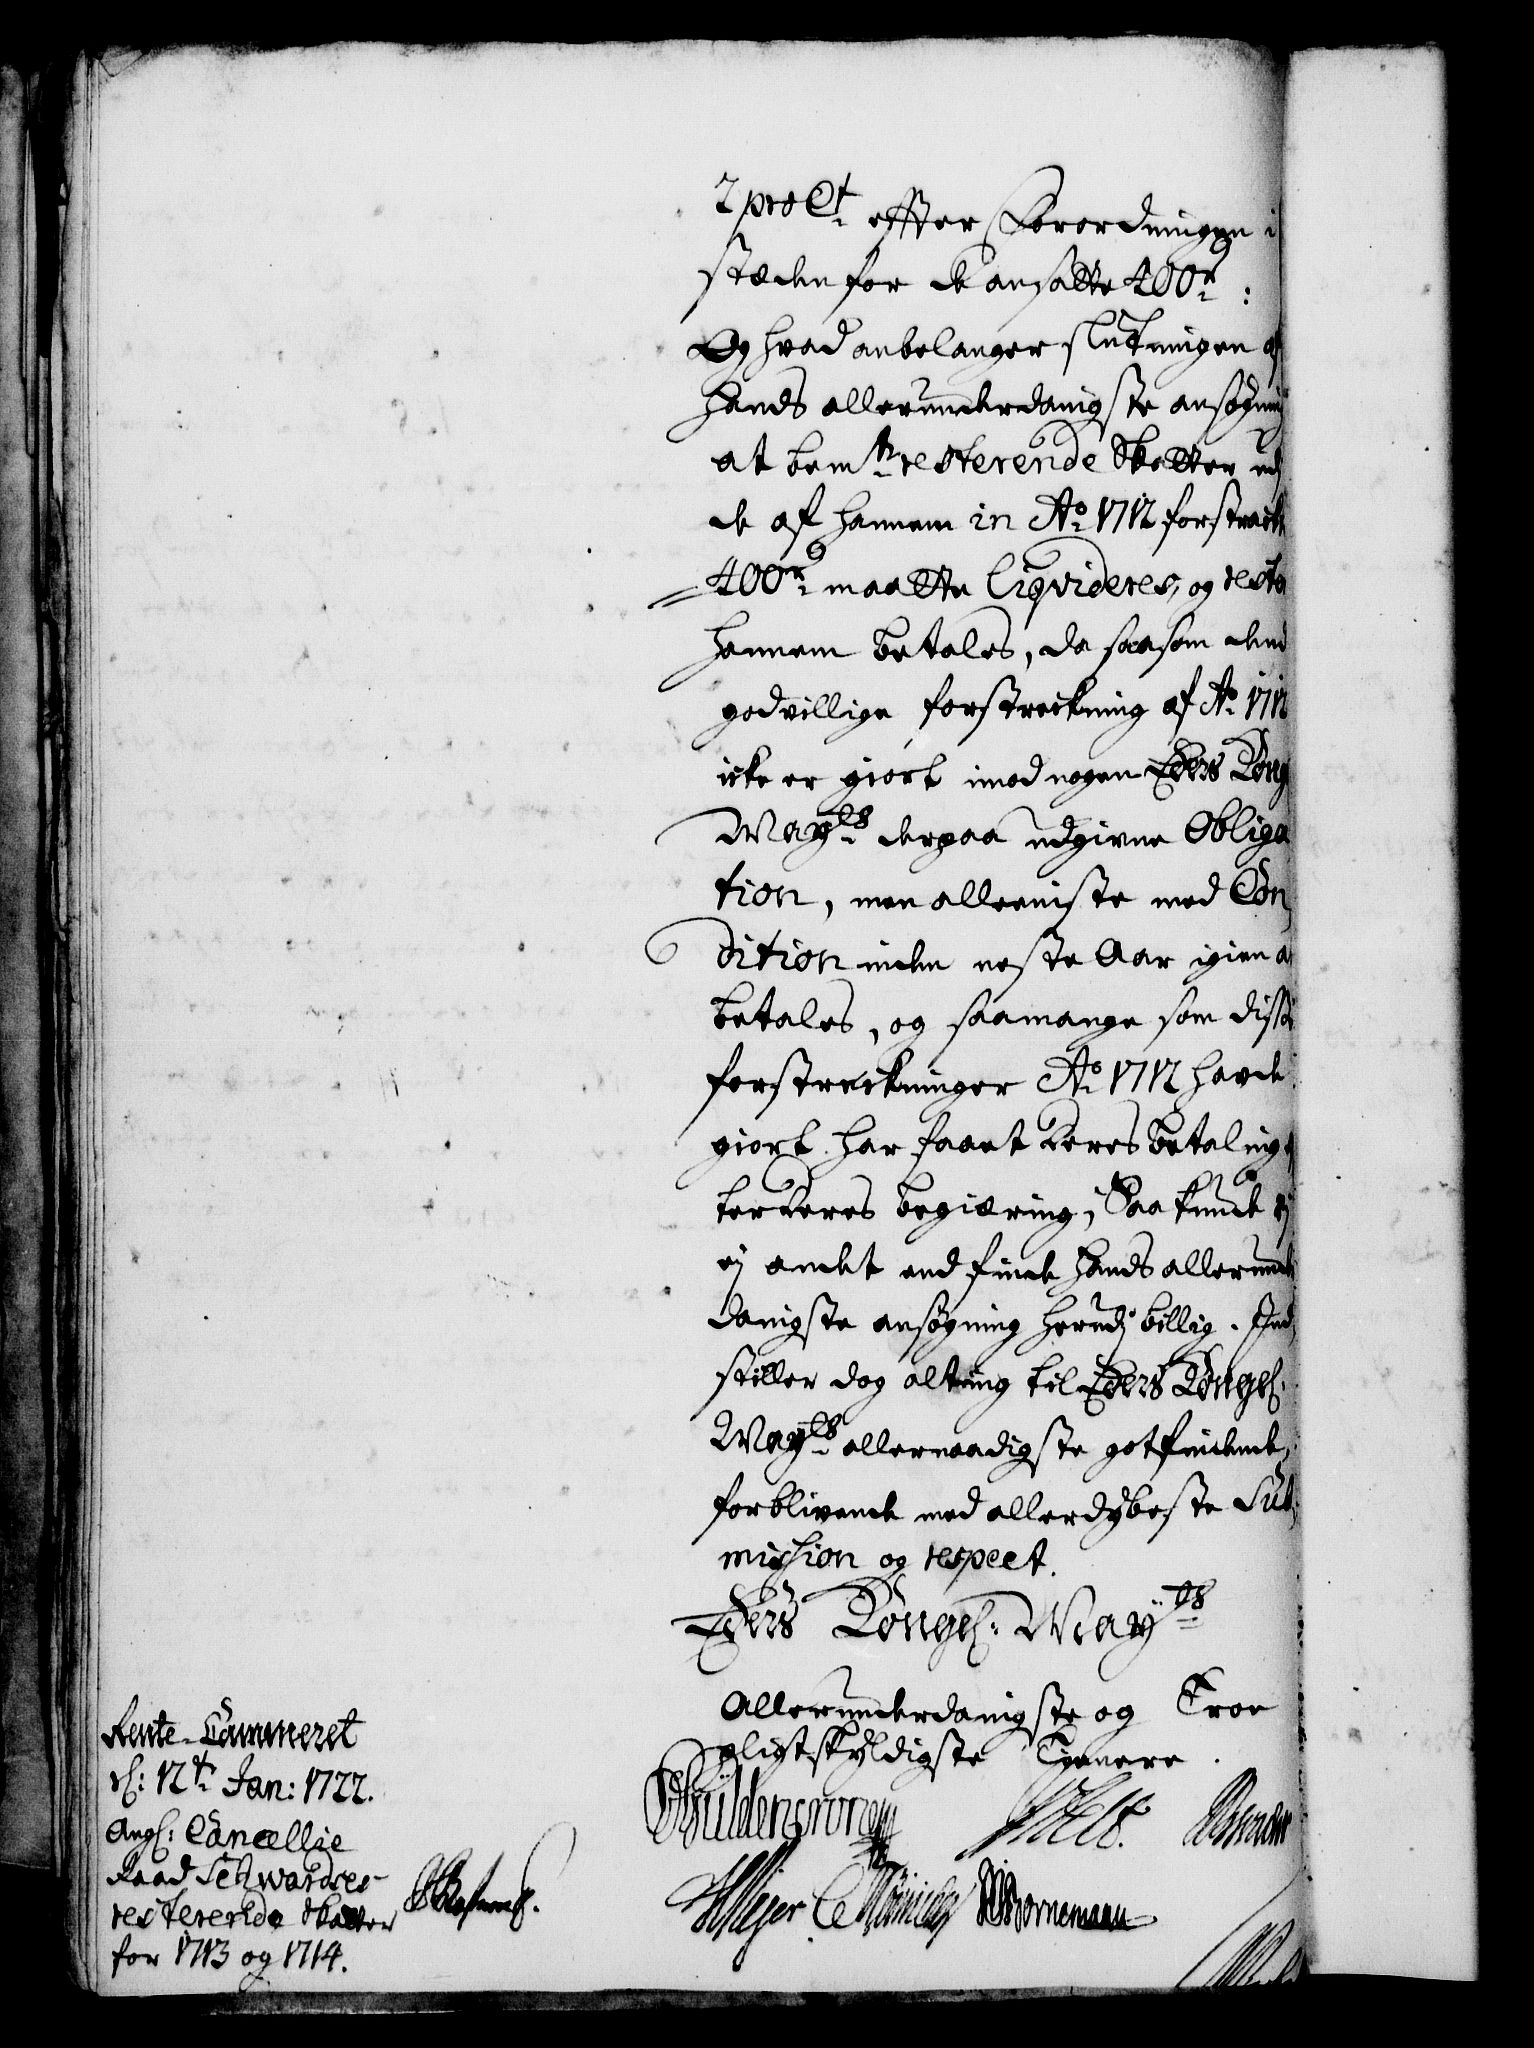 2 pro Ct. effter Forordningen i
stæden for de ansatte 400 r:
Og hvad anbelanger slutningen af
hands allerunderdanigste ansøgning
at bemte resterende Skatter udj
de af hannem in Ao. 1712 forstrackte
400 r. maatte liqvideres, og resten
hannem betales, da saasom dend
godvillige forstreckning af Ao. 1712
icke er giort imod nogen Eders Kongl
Mayts derpaa udgivne Obliga
tion, men alleeniste med Con,
dition inden neste Aar igien at
betales, og saamange som disse
forstreckninger Ao. 1712 havde
giort har faaet deres betaling ef
ter deres begiæring, Saa kunde vj
ej andet end finde hands allerunder
danigste ansøgning herudj billig. Ind,
stiller dog alting til Eders Kongel:
Mayts allernaadigste gotfindende,
forblivende med allerdybeste Sub,
mission og respect.
Eders Kongel: Mayts
Allerunderdanigste og Troe
pligtskyldigste Tienere.
Güldencrone
Meyer
Bornemann
Rente-Cammeret
d: 12te Jan: 1722.
Angl: Cancellie
Raad Schwardses
resterende Skatter
for 1713 og 1714.